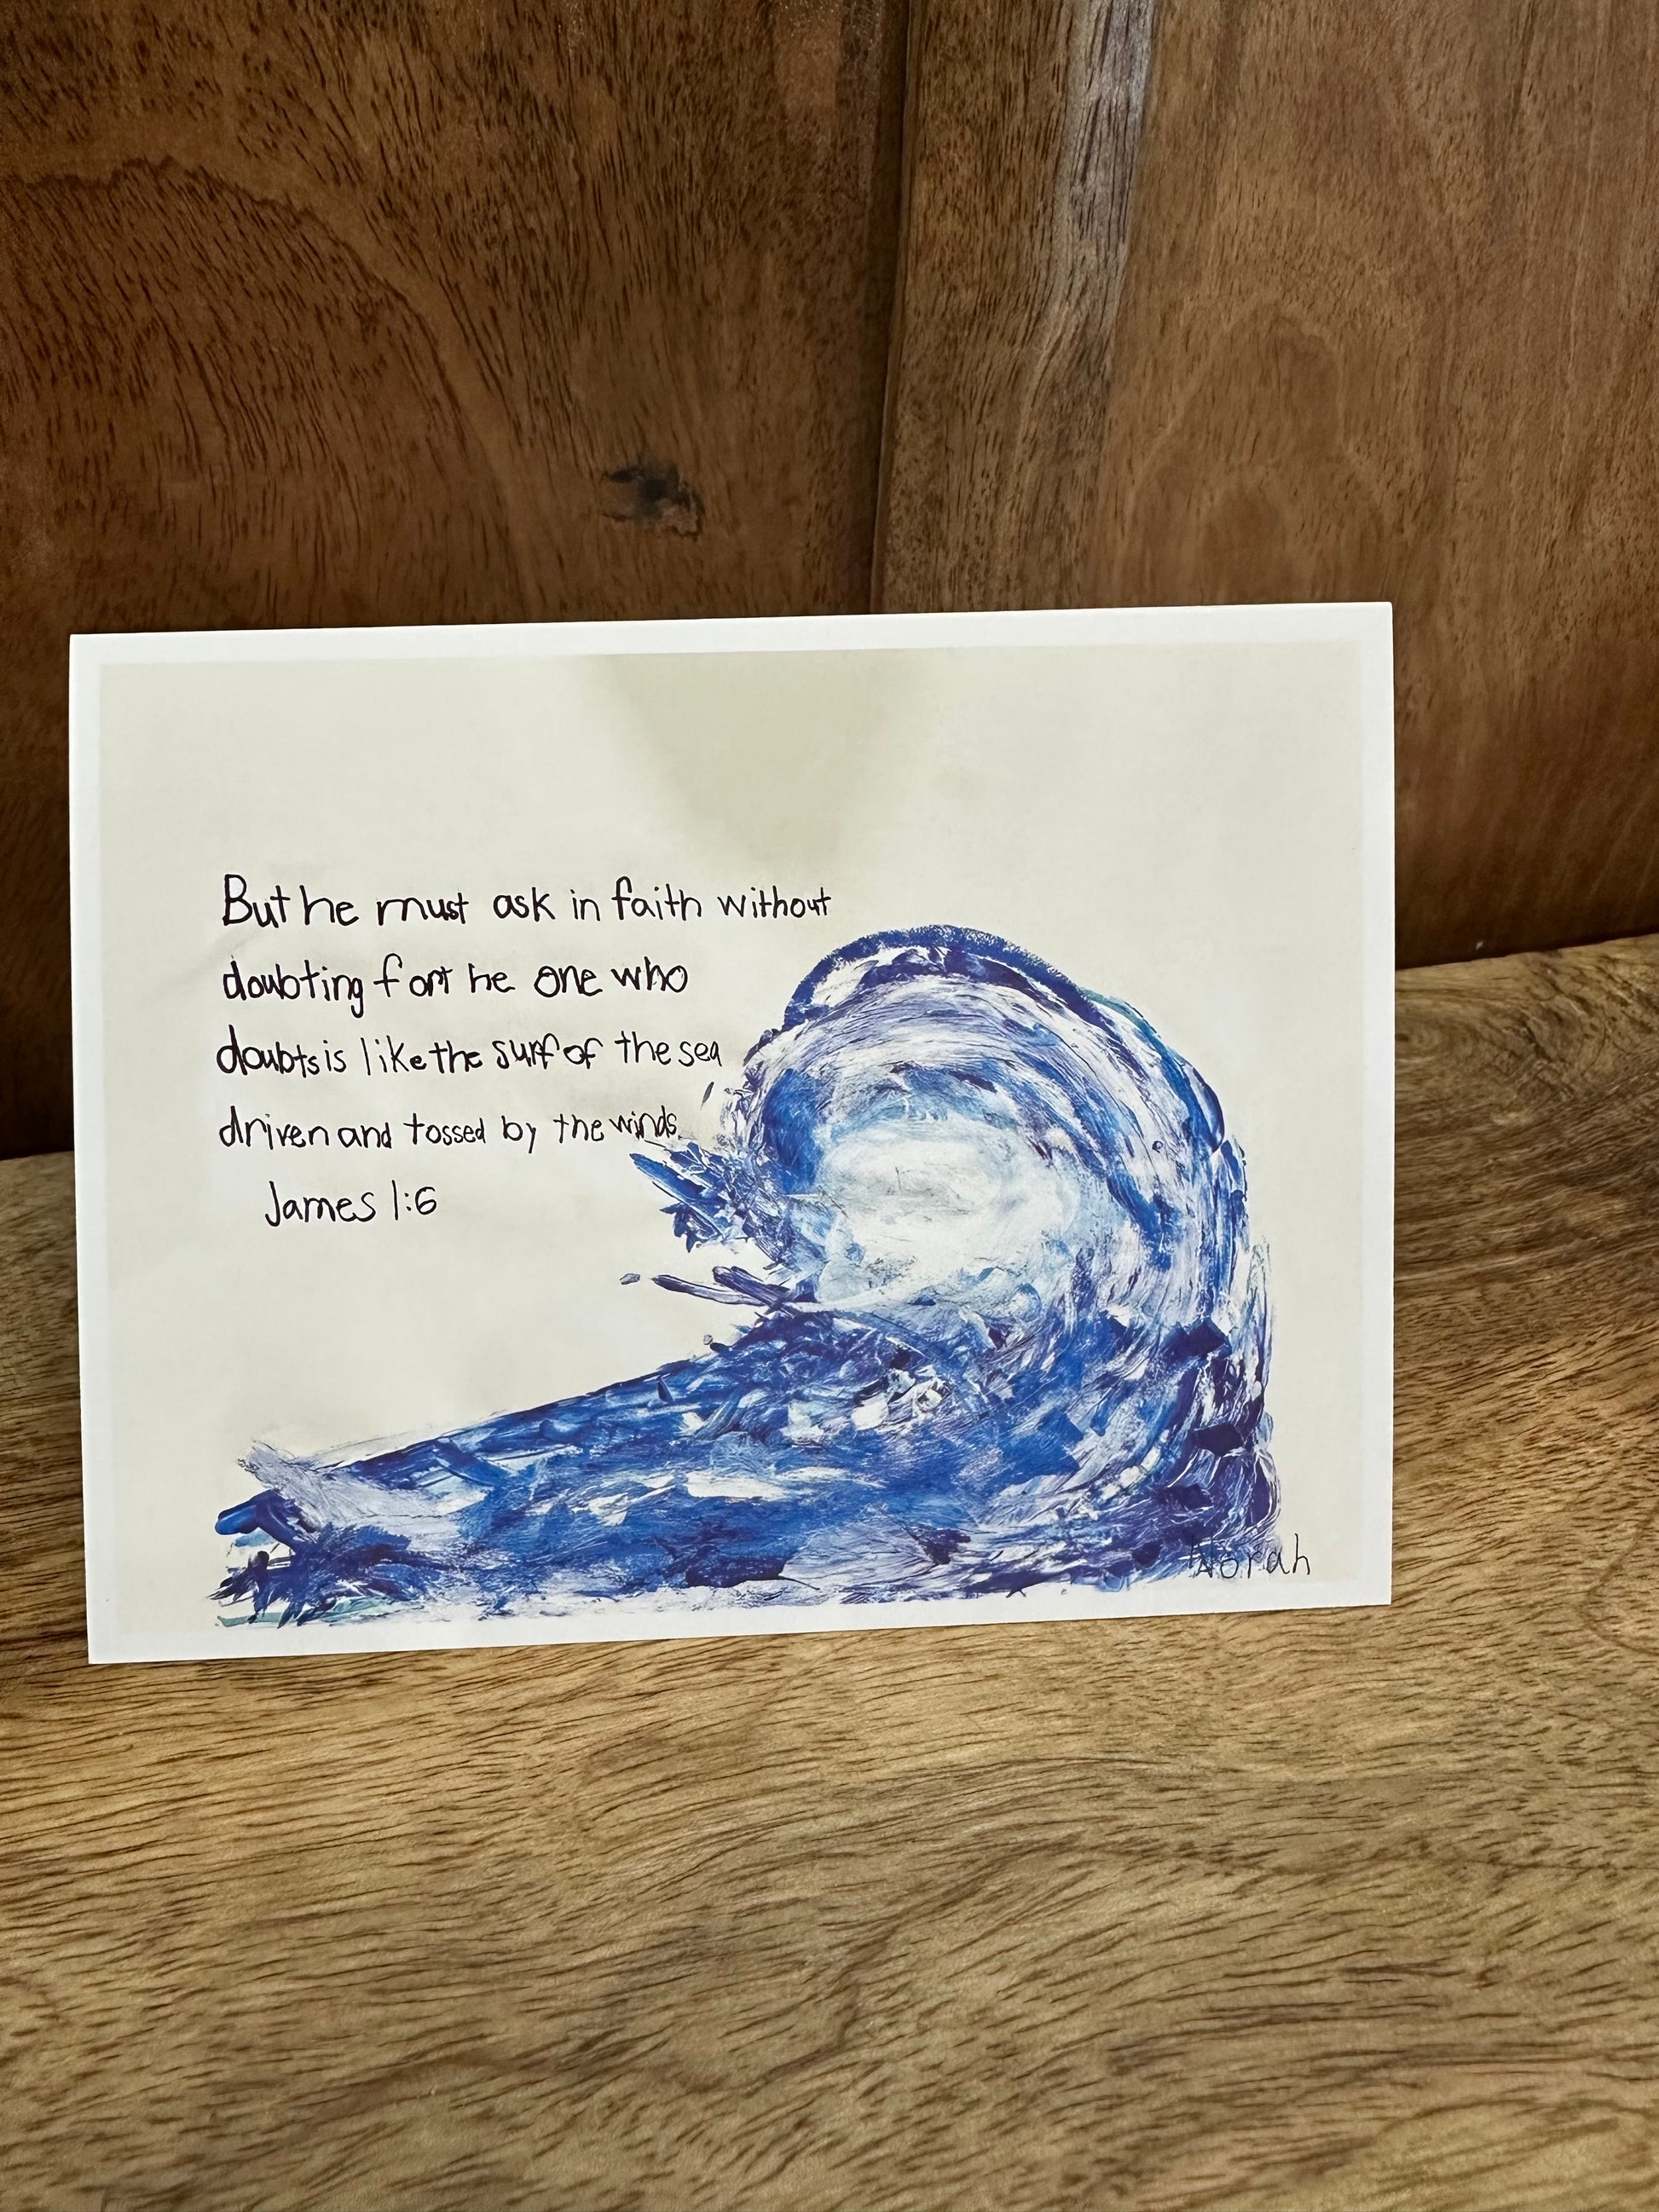 But he must ask in faith without
doubting fort he one who
doubts is like the surf of the sea
driven and tossed by the winds.
James 1:6
Norah